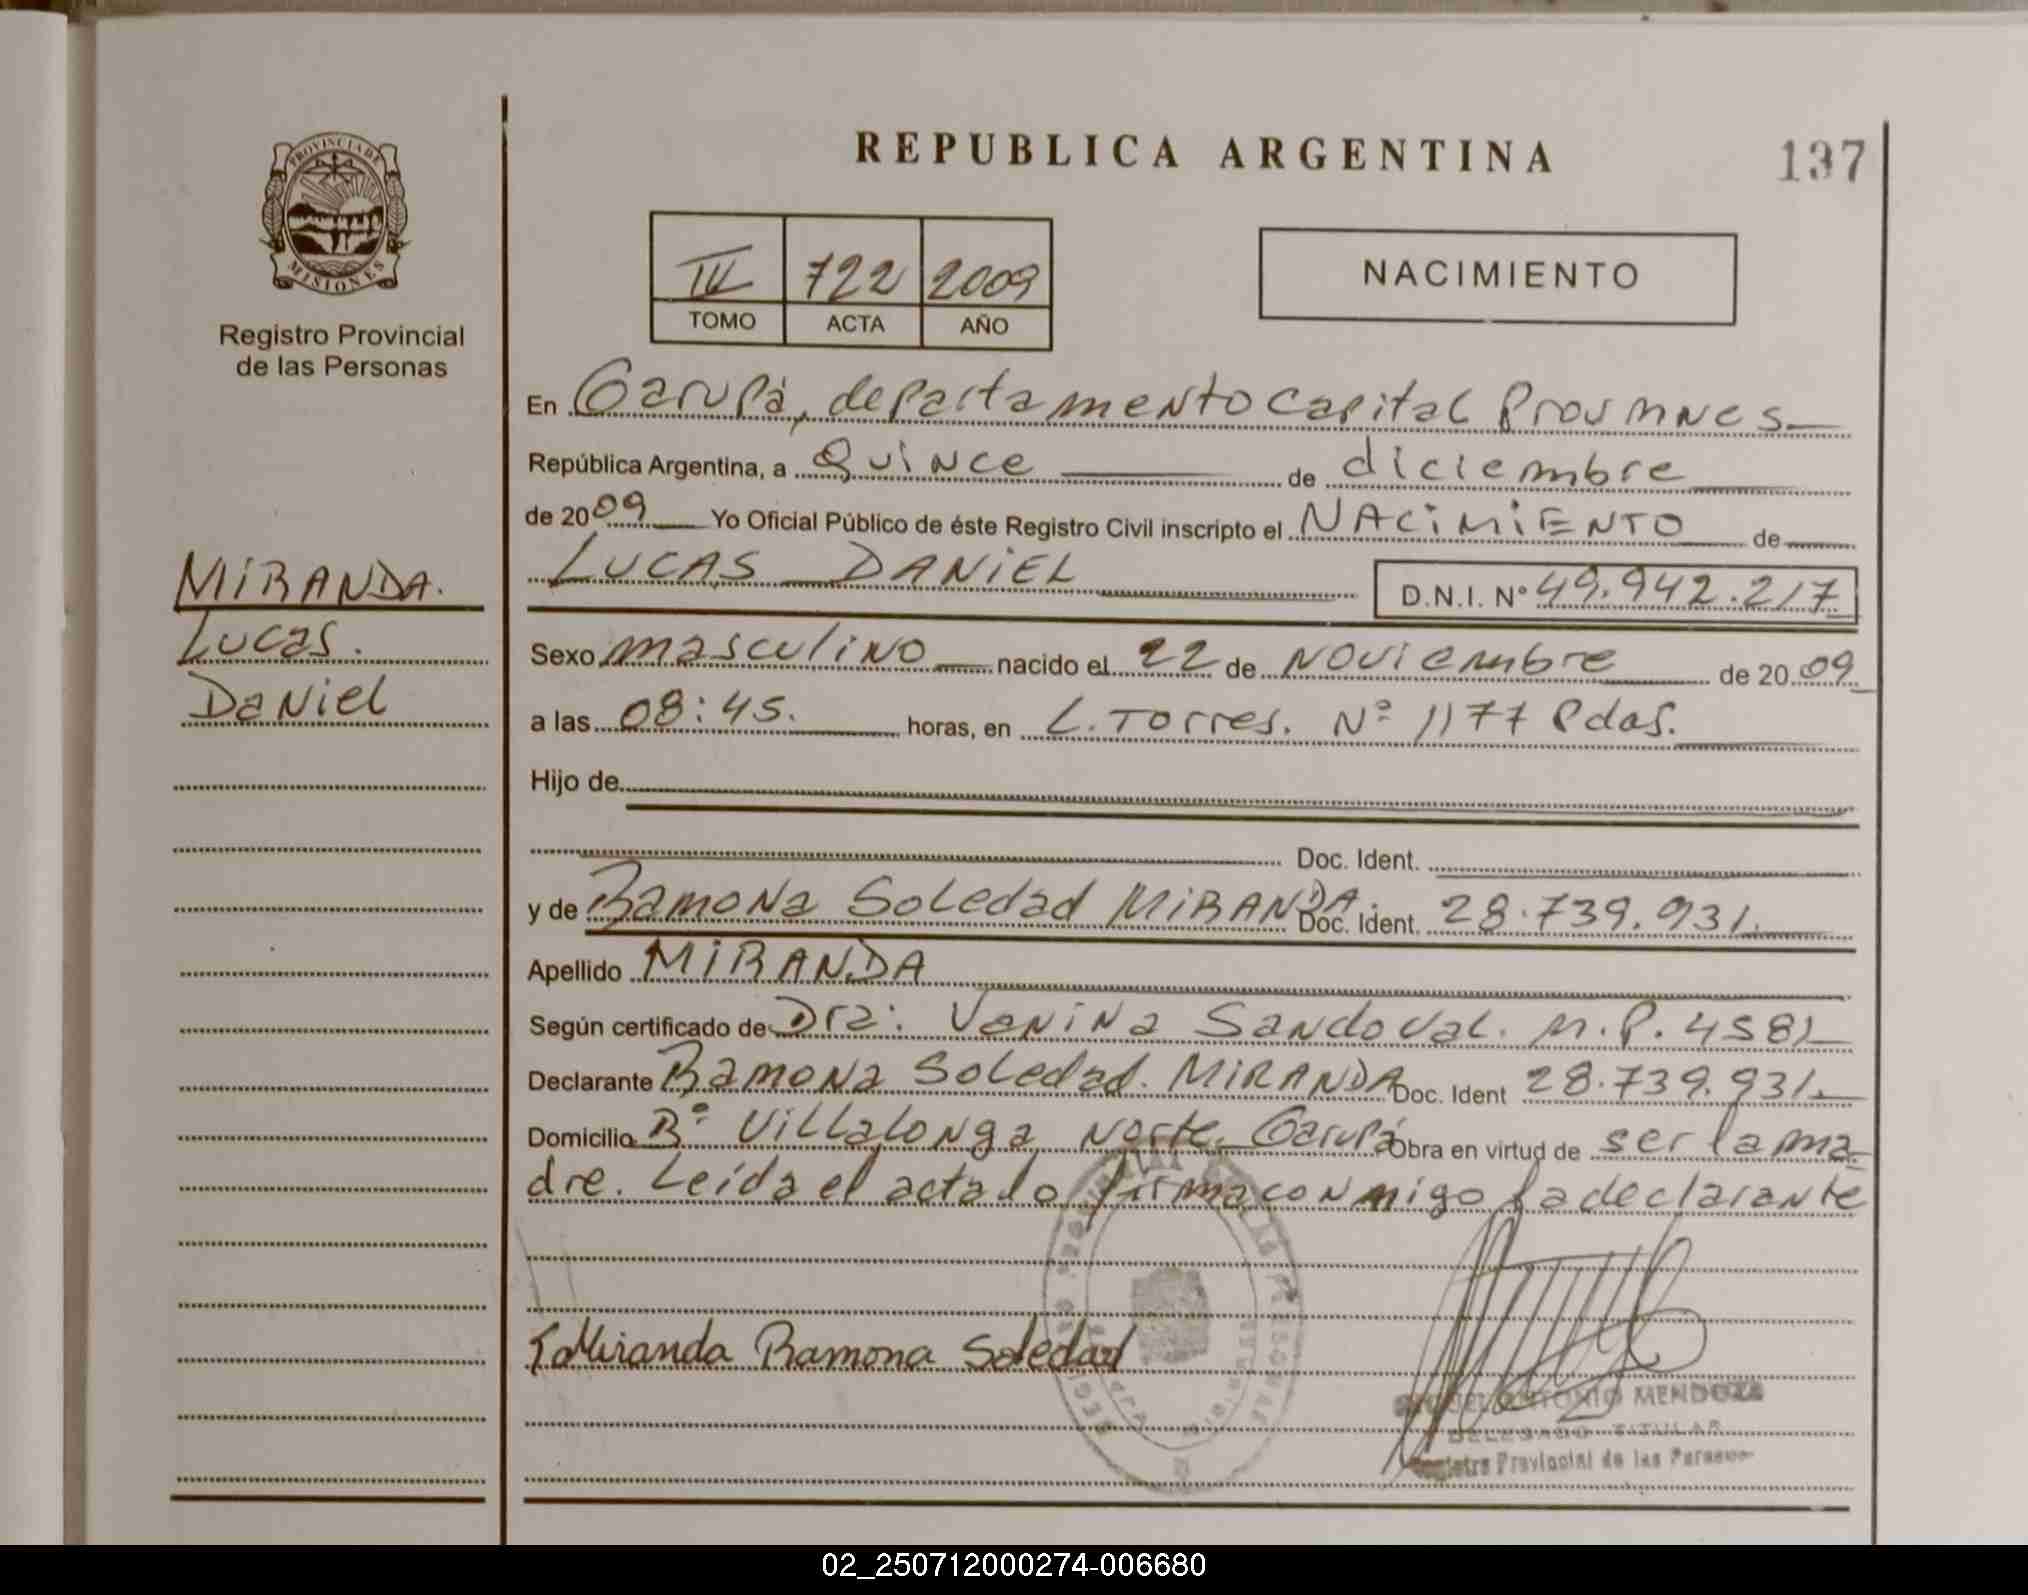 REPUBLICA ARGENTINA
137
PROVINCIA DE
MISIONES
Registro Provincial
de las Personas
IV 722 2009
TOMO ACTA AÑO
NACIMIENTO
En Garupá, departamento capital Prov mnes
República Argentina, a Quince de diciembre
de 2009 Yo Oficial Público de éste Registro Civil inscripto el NACIMIENTO de
LUCAS DANIEL D.N.I. Nº 49.942.217
MIRANDA.
Lucas.
Daniel
Sexo masculino nacido el 22 de noviembre de 2009
a las 08:45. horas, en L. Torres. Nº 1177 Pdas.
Hijo de
Doc. Ident.
y de Ramona Soledad MIRANDA. Doc. Ident. 28.739.931.
Apellido MIRANDA
Según certificado de Dra: Vanina Sandoval. M.P. 4581
Declarante Ramona Soledad. MIRANDA Doc. Ident 28.739.931.
Domicilio Bº Villalonga norte. Garupá Obra en virtud de ser la ma-
dre. Leída el acta lo firma conmigo la declarante
Miranda Ramona Soledad
ANTONIO MENDOZA
DELEGADO TITULAR
Registro Provincial de las Personas
02_250712000274-006680